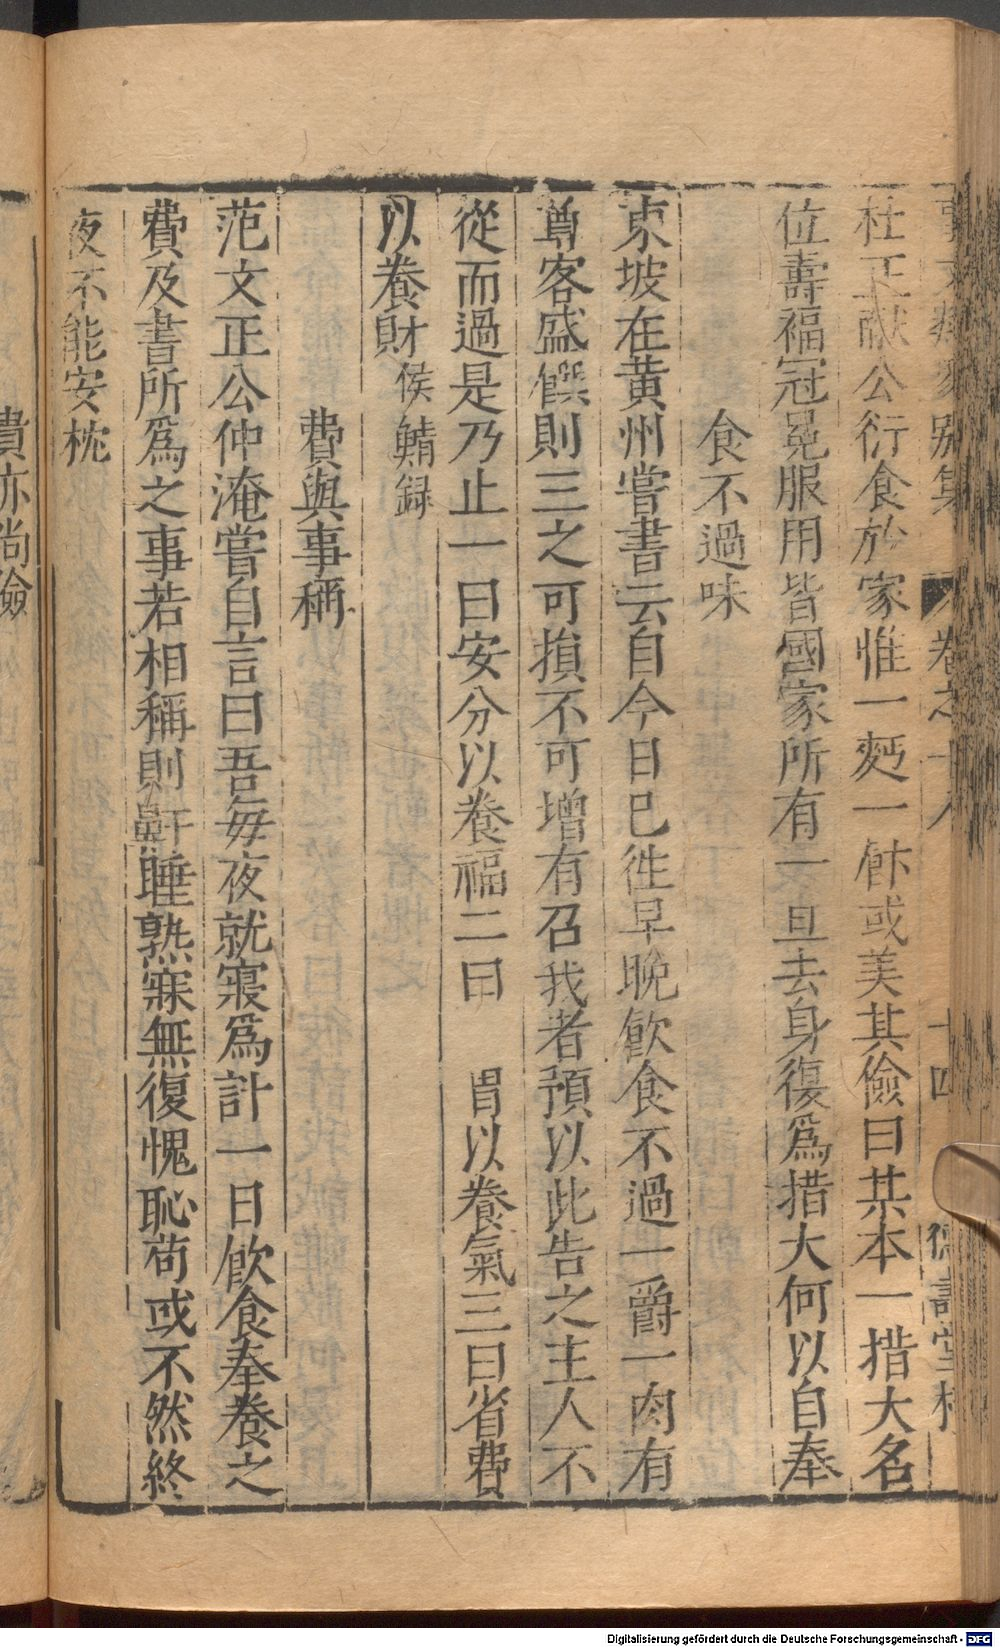 事文類聚別集 卷之十八 十四 德壽堂梓
杜正獻公衍食於家惟一麪一飰或美其儉曰某本一措大名
位壽福冠冕服用皆國家所有一旦去身復爲措大何以自奉
食不過味
東坡在黃州嘗書云自今日已徃早晚飮食不過一爵一肉有
尊客盛饌則三之可損不可增有召我者預以此告之主人不
從而過是乃止一曰安分以養福二曰 胃以養氣三曰省費
以養財侯鯖録
費與事稱
范文正公仲淹嘗自言曰吾每夜就寢爲計一日飮食奉養之
費及晝所爲之事若相稱則鼾睡熟寐無復愧恥苟或不然終
夜不能安枕
貴亦尚儉
Digitalisierung gefördert durch die Deutsche Forschungsgemeinschaft - DFG